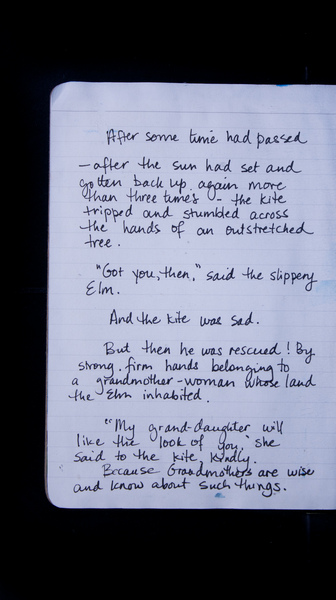 After some time had passed
– after the sun had set and
gotten back up again more
than three times – the kite
tripped and stumbled across
the hands of an outstretched
tree.
"Got you, then," said the slippery
Elm.
And the kite was sad.
But then he was rescued! By
strong, firm hands belonging to
a grandmother-woman whose land
the Elm inhabited.
"My grand-daughter will
like the look of you," she
said to the kite, kindly.
Because Grandmothers are wise
and know about such things.